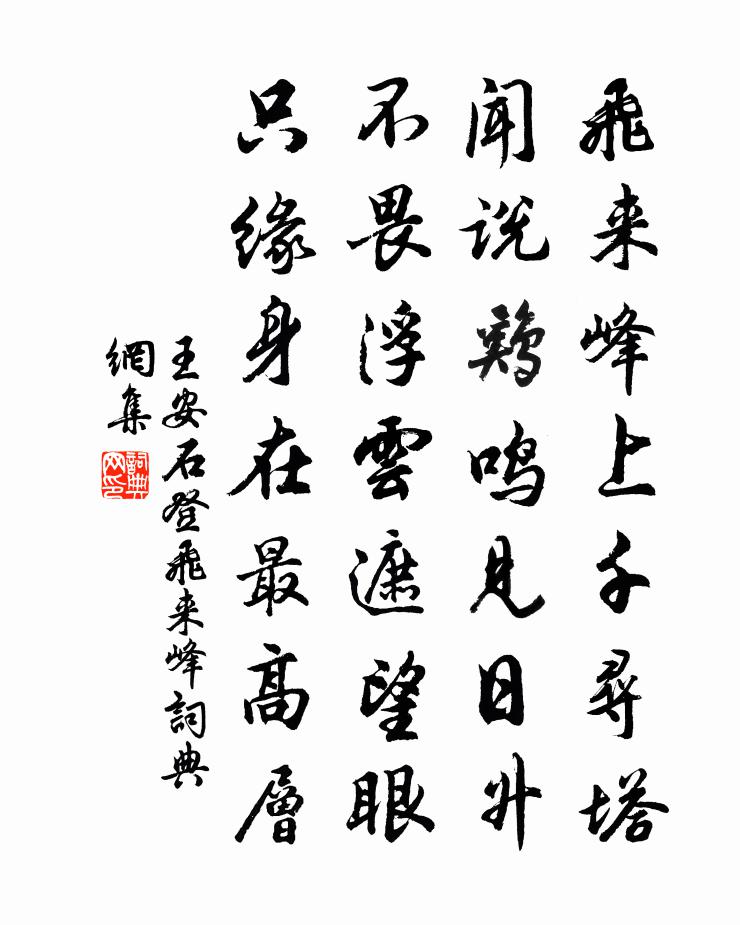 飛来峰上千尋塔
闻説鷄鳴見日升
不畏浮雲遮望眼
只緣身在最高層
王安石登飛来峰詞典
網集
詞典
网印